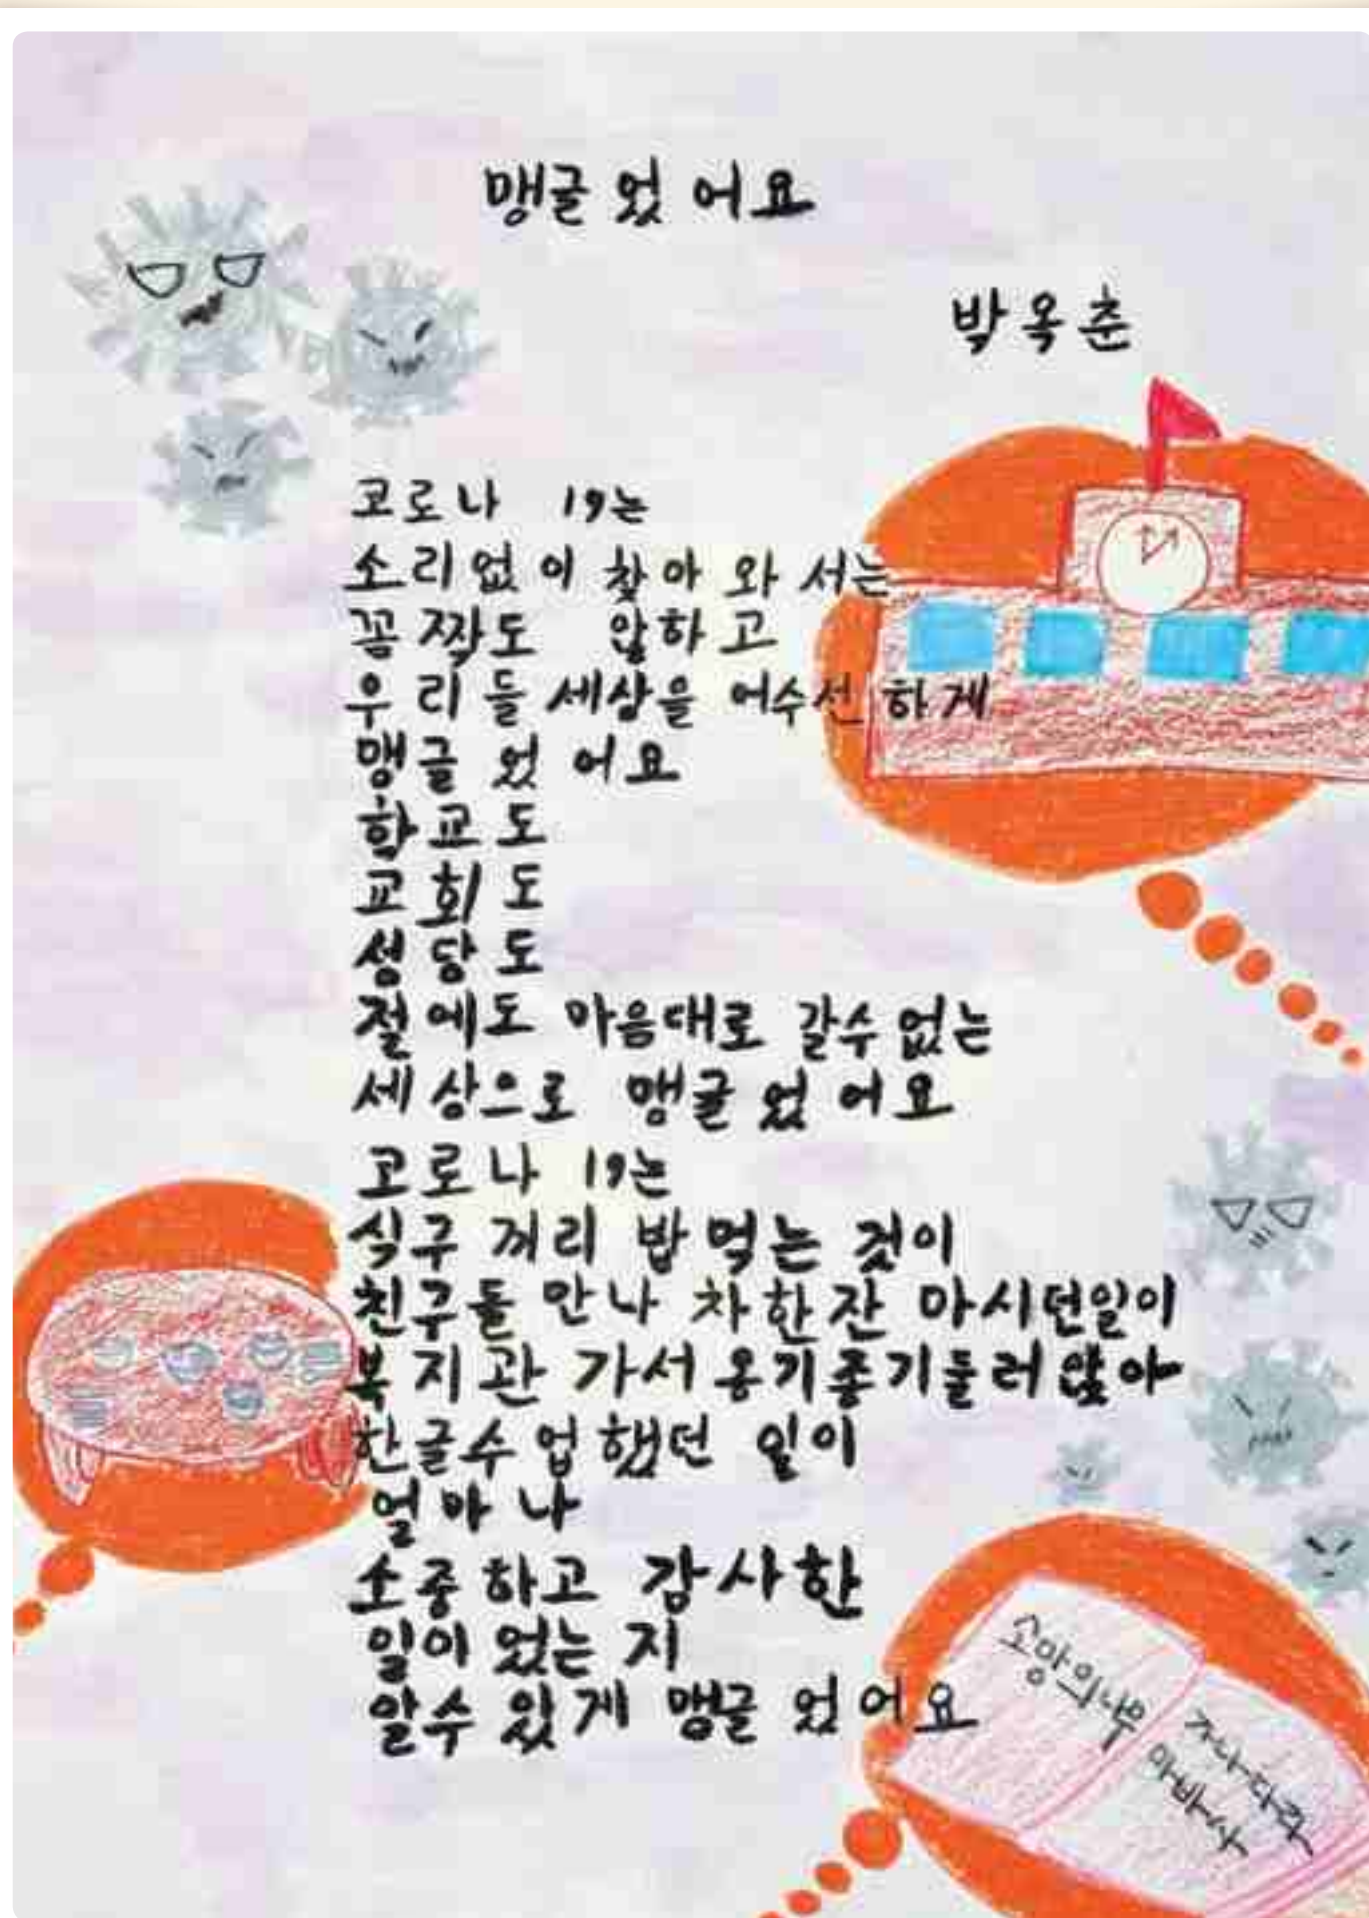 맹글었어요
박옥춘
코로나 19는
소리없이 찾아 와 서는
꼼짝도 않하고
우리들 세상을 어수선 하게
맹글었어요
학교도
교회도
성당도
절에도 마음대로 갈수없는
세상으로 맹글었어요
코로나 19는
식구 끼리 밥 먹는 것이
친구들 만나 차한잔 마시던일이
복지관 가서 옹기종기둘러앉아
한글수업했던 일이
얼마나
소중하고 감사한
일이 었는지
알수 있게 맹글었어요
소망의나무
가나다라
마바사